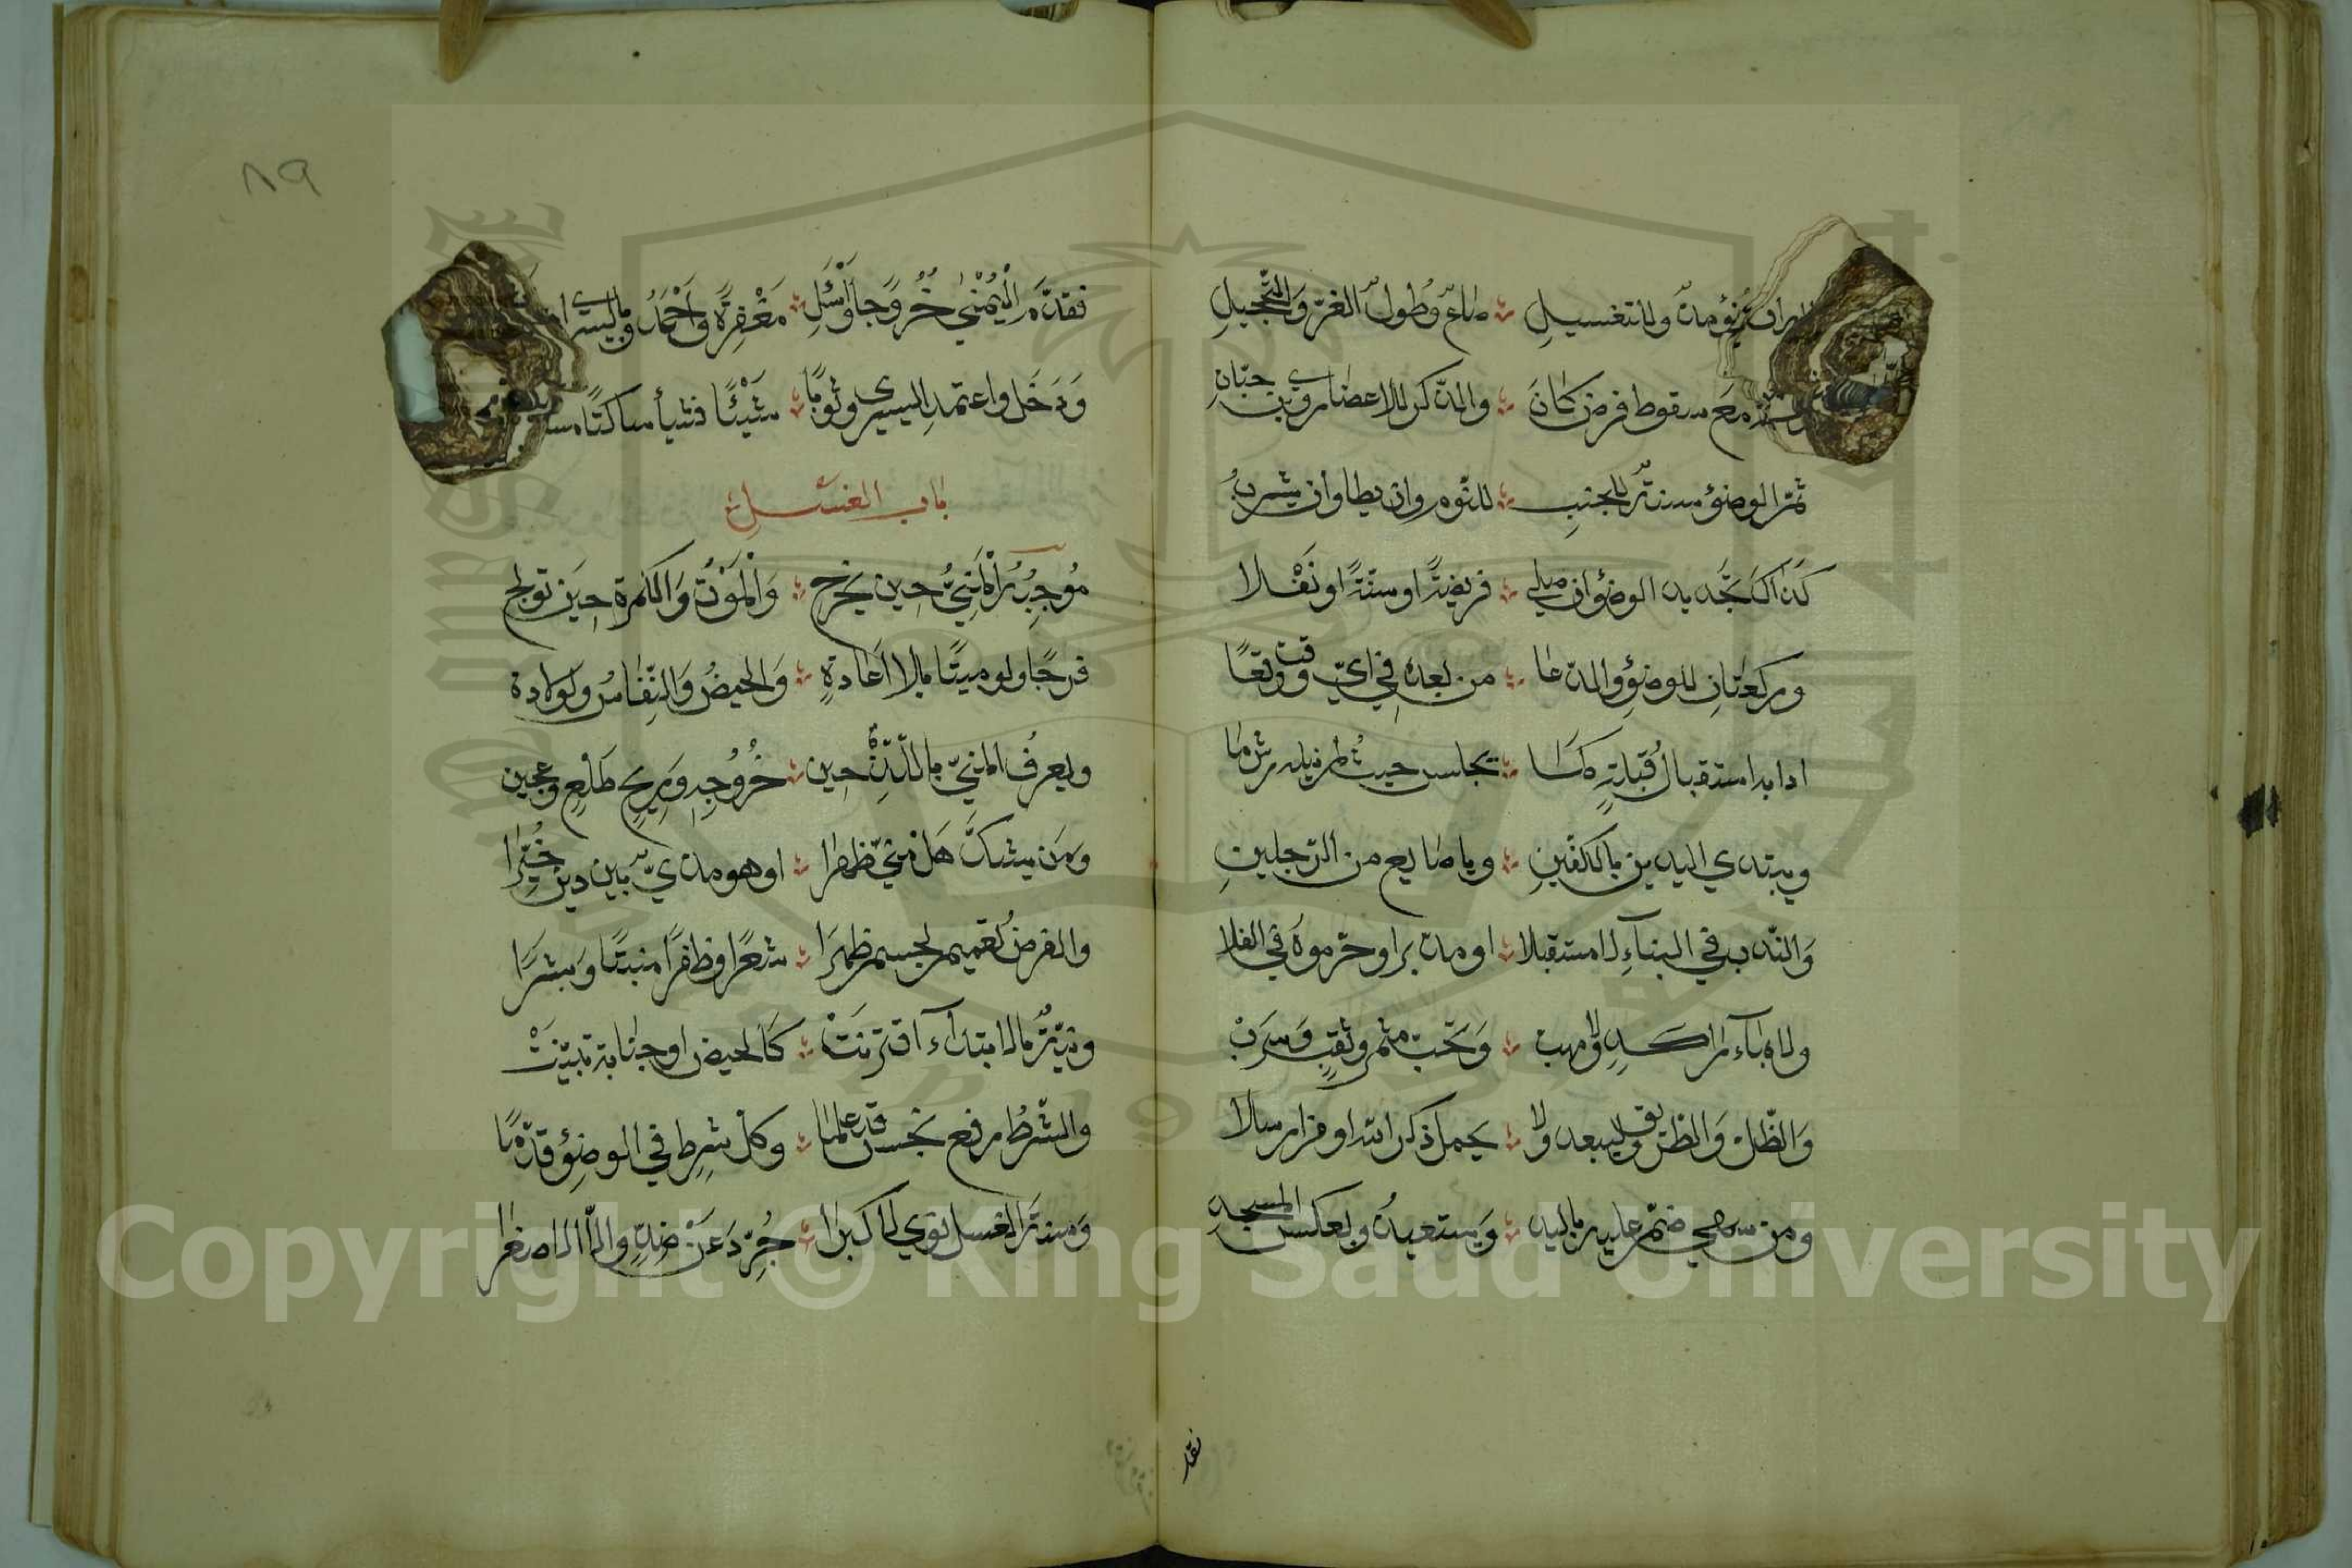 للتغسيل صاع وطول الغر والتحجيل
مع سقوط فرض كان والذكر للاعضاء روى حبان
ثم الوضوء سنة للجنب للنوم وان يطا وان يشرب
كذاك تجديد الوضوء ان صلى فريضة او سنة او نفلا
وركعتان للوضوء والدعا من بعده في اي وقت وقعا
اداب استقبال قبلة كما يجلس حيث لم ينله رش ما
ويبتدي اليدين بالكفين وباصابع من الرجلين
والندب في البناء لا مستقبلا او مدبرا وحرموه في الفلا
ولا بماء راكد ولا مهب وتحت مثمر وثقب وسرب
والظل والطريق وليبعد ولا يحمل ذكر الله او من ارسلا
ومن سهى ضم عليه باليد ويستعيذ وبعكس المسجد
فقد
فقدم اليمنى خروجا واسئل مغفرة واحمد وباليسرى
ودخل واعتمد اليسرى وثوبا شيئا فشيأ ساكتا
باب الغسل
موجبه المني حين يخرج والموت والكمرة حين تولج
فرجا ولو ميتا بلا اعادة والحيض والنفاس ولولادة
ويعرف المني باللذة حين خروجه وريح طلع وعجين
ومن يشك هل مني ظهرا او هو مذي بين ذين خيرا
والفرض تعميم لجسم ظهرا شعرا وظفرا منبتا وبشرا
ونية بالابتداء اقترنت كالحيض او جنابة تبينت
والشرط رفع نجس قد علما وكل شرط في الوضوء قدما
وسنة الغسل نوى لاكبرا جرد عن ضد والا الاصغرا
٨٩
Copyright © King Saud University